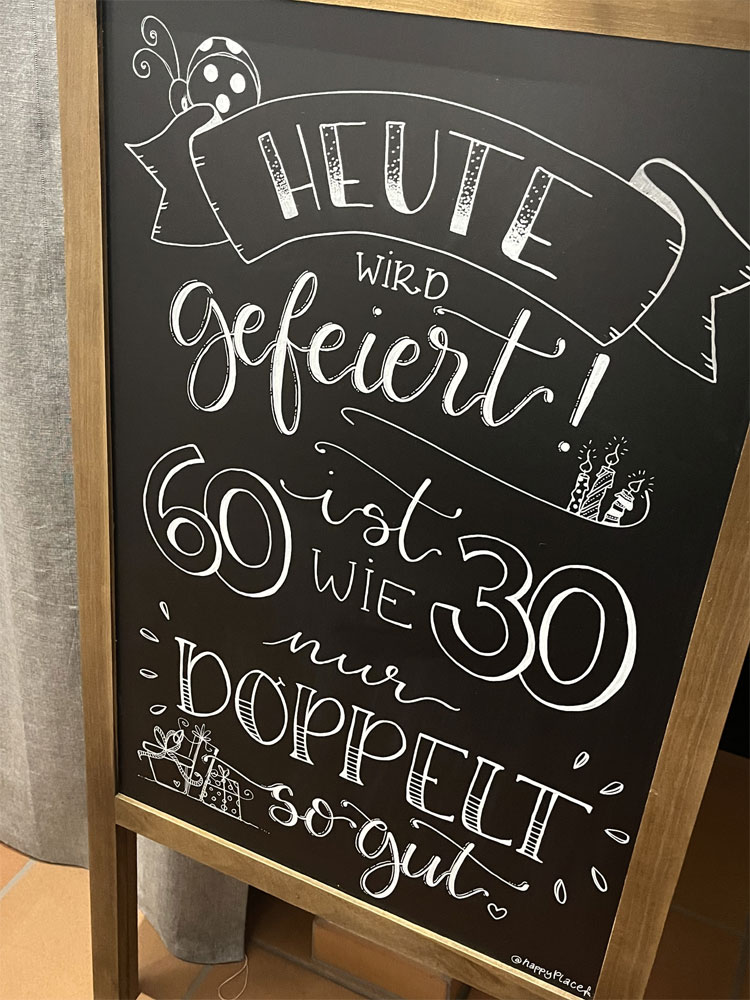 HEUTE
WIRD
gefeiert!
60 ist WIE 30
nur
DOPPELT
so gut
@happyplacek